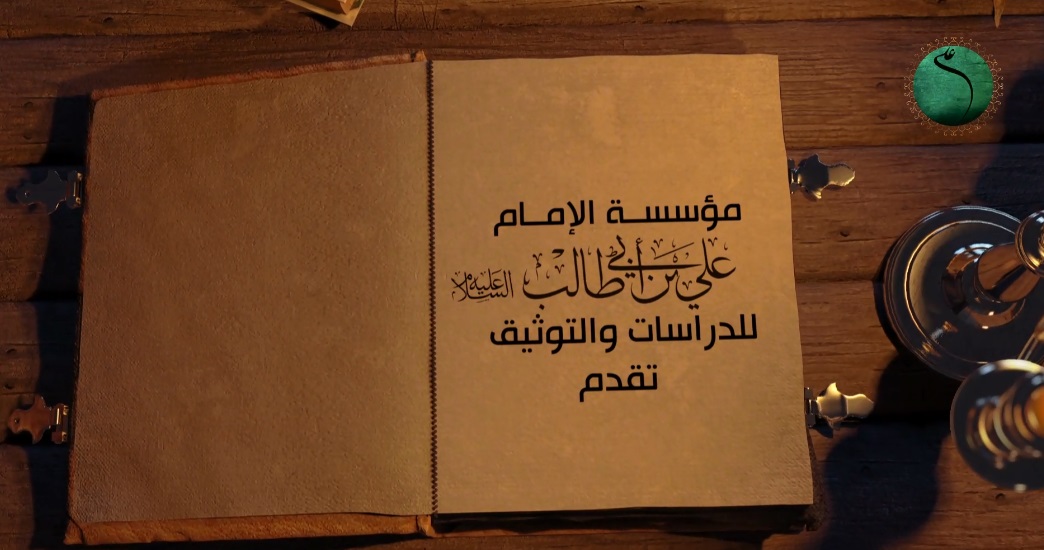 مؤسسة الإمام
علي بن أبي طالب عليه السلام
للدراسات والتوثيق
تقدم